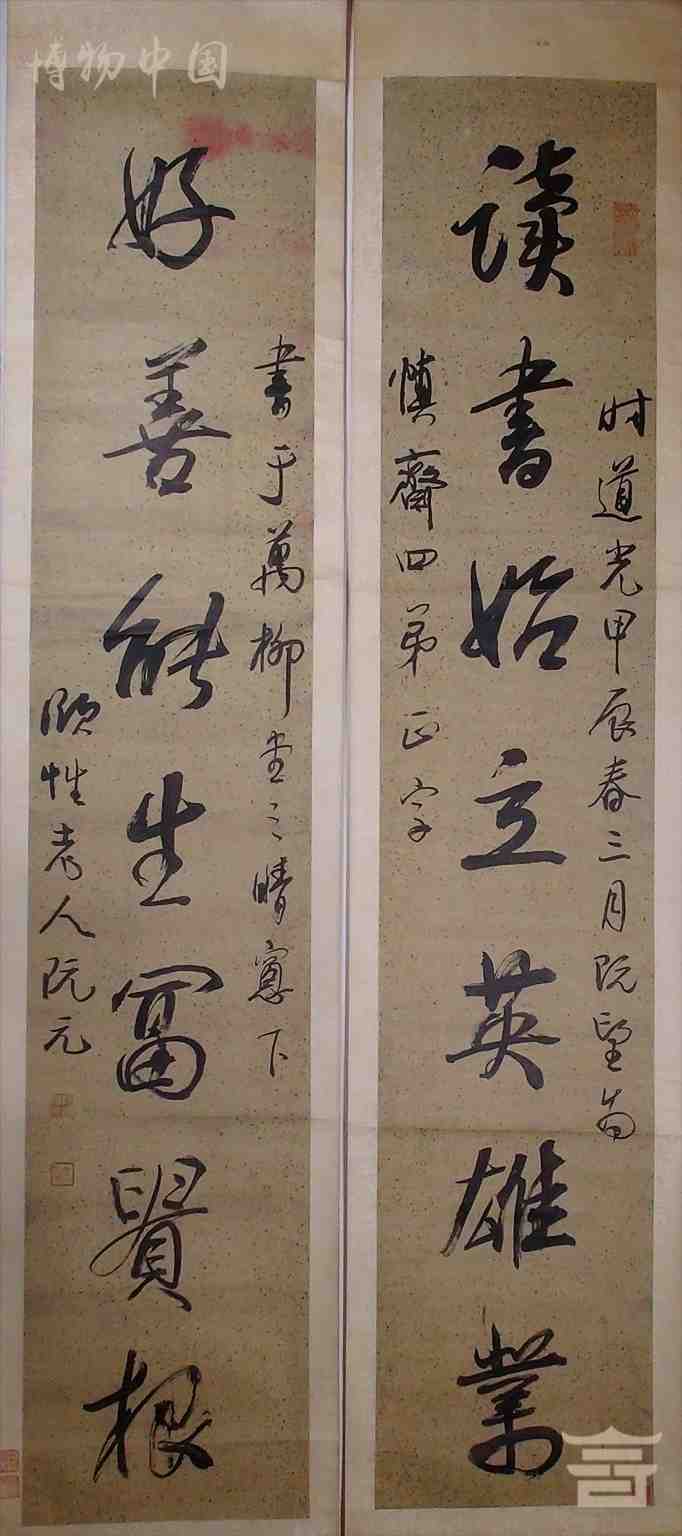 博物中国
时道光甲辰春三月既望为
读书始立英雄業
慎齋四弟正字
书于萬柳堂之晴窓下
好善能生富貴根
頤性老人阮元